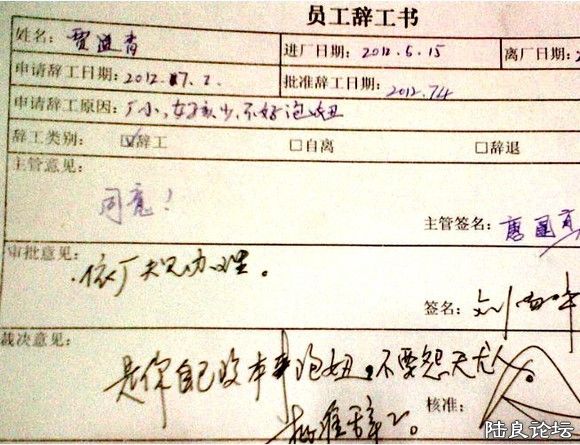 员工辞工书
姓名: 贾进青 进厂日期: 2012.6.15 离厂日期: 2
申请辞工日期: 2012.7.2. 批准辞工日期: 2012.7.4
申请辞工原因: 厂小,女孩少,不好泡妞
辞工类别: ☑辞工 □自离 □辞退
主管意见:
同意!
主管签名: 唐
审批意见:
依厂规办理。
签名: 刘
裁决意见:
是你自己没本事泡妞,不要怨天尤人。
核准:
批准辞工。
陆良论坛